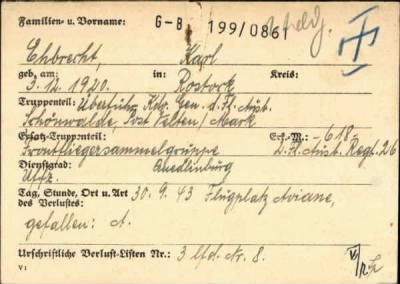 Familien- u. Vorname: G-B 199/0861
Ehbrecht, Karl
geb. am: in: Kreis:
3.12.1920. Rostock
Truppenteil: Überführ. Kdo. Gen. d. Fl. Ausb.
Schönwalde, Post Velten/Mark
Ersatz-Truppenteil: Erk.-M.: -618-
Frontfliegersammelgruppe D. Fl. Ausb. Regt. 26
Dienstgrad: Quedlinburg
Uffz.
Tag, Stunde, Ort u. Art 30.9.43 Flugplatz Aviano,
des Verlustes:
gefallen: A.
Urschriftliche Verlust-Listen Nr.: 3 lfd. Nr. 8.
V1